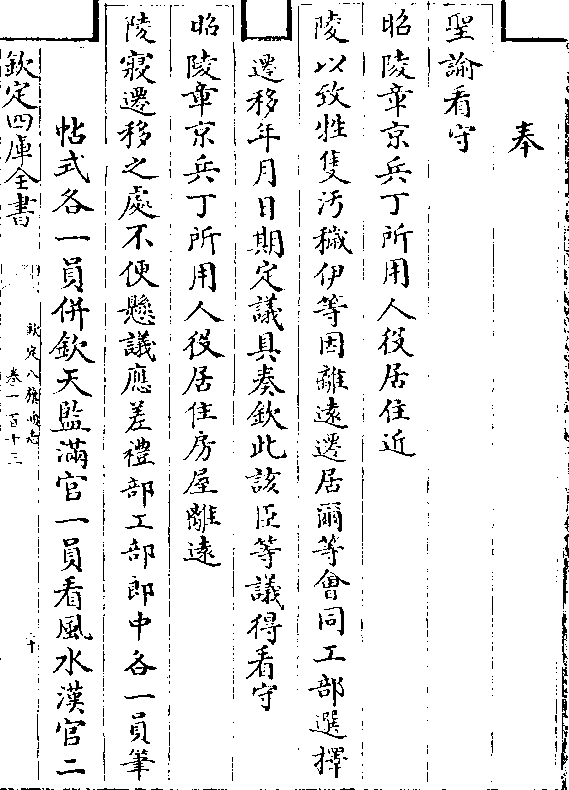 奉
聖諭看守
昭陵章京兵丁所用人役居住近
陵以致牲隻汚穢伊等因離遠遷居爾等會同工部選擇
遷移年月日期定議具奏欽此該臣等議得看守
昭陵章京兵丁所用人役居住房屋離遠
陵寢遷移之處不便懸議應差禮部工部郎中各一員筆
帖式各一員併欽天監滿官一員看風水漢官二
欽定四庫全書
欽定八旗通志
卷一百十三
十